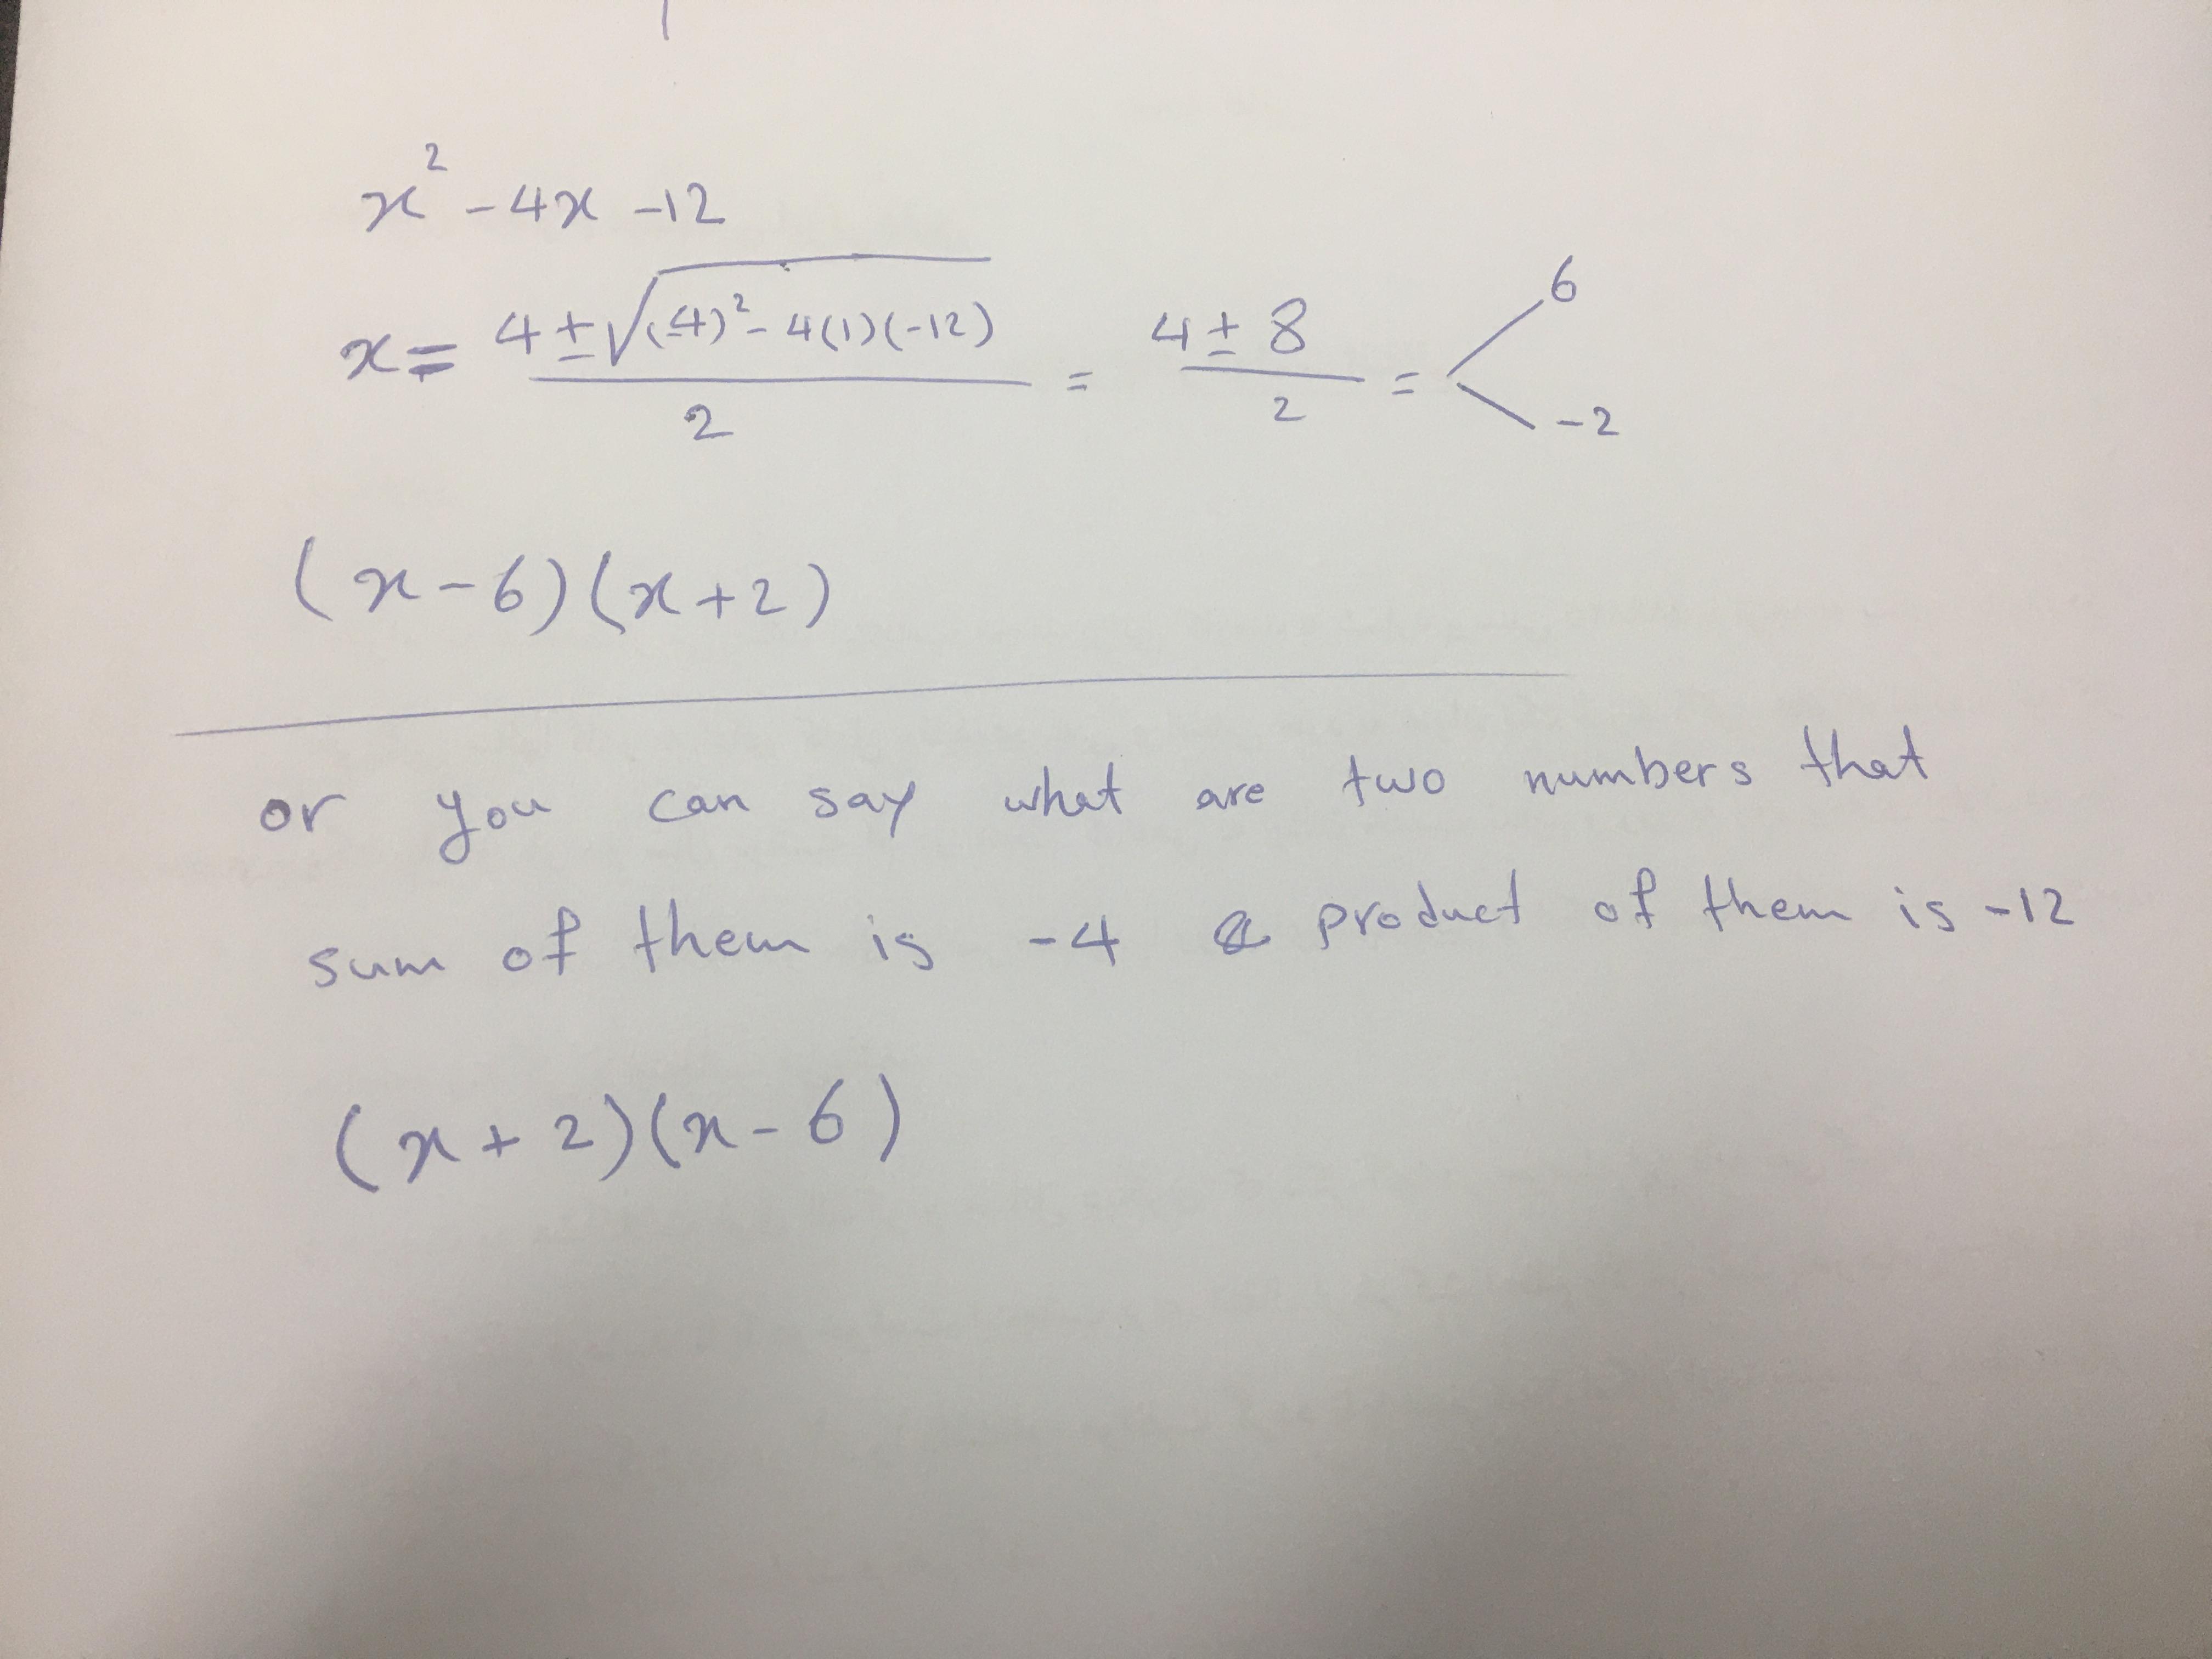 x² - 4x - 12
x = (4 ± √((-4)² - 4(1)(-12))) / 2 = (4 ± 8) / 2 = < 6, -2
(x - 6)(x + 2)
or you can say what are two numbers that
sum of them is -4 & product of them is -12
(x + 2)(x - 6)